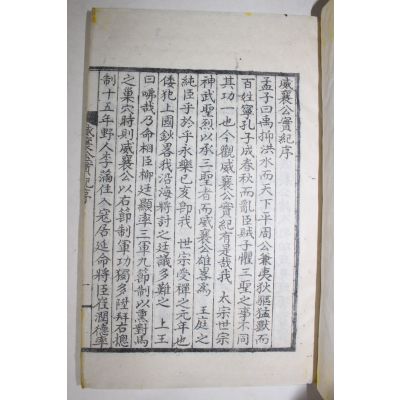 威襄公實紀序
孟子曰禹抑洪水而天下平周公兼夷狄驅猛獸而
百姓寧孔子成春秋而亂臣賊子懼三聖之事不同
其功一也今觀威襄公實紀有是哉我 太宗世宗
神武聖烈以承三聖者而威襄公雄畧為 王庭之
純臣乎於乎永樂己亥卽我 世宗受禪之元年也
倭犯上國欽畧我沿海將討之廷議多難之 上王
曰咈哉乃命相臣柳廷顯率三軍九節制以熏對馬
之巢穴時則威襄公以右節制軍功獨多陞拜右摠
制十五年野人李滿住入寇居延命將臣崔潤德率
威襄公實紀序
一